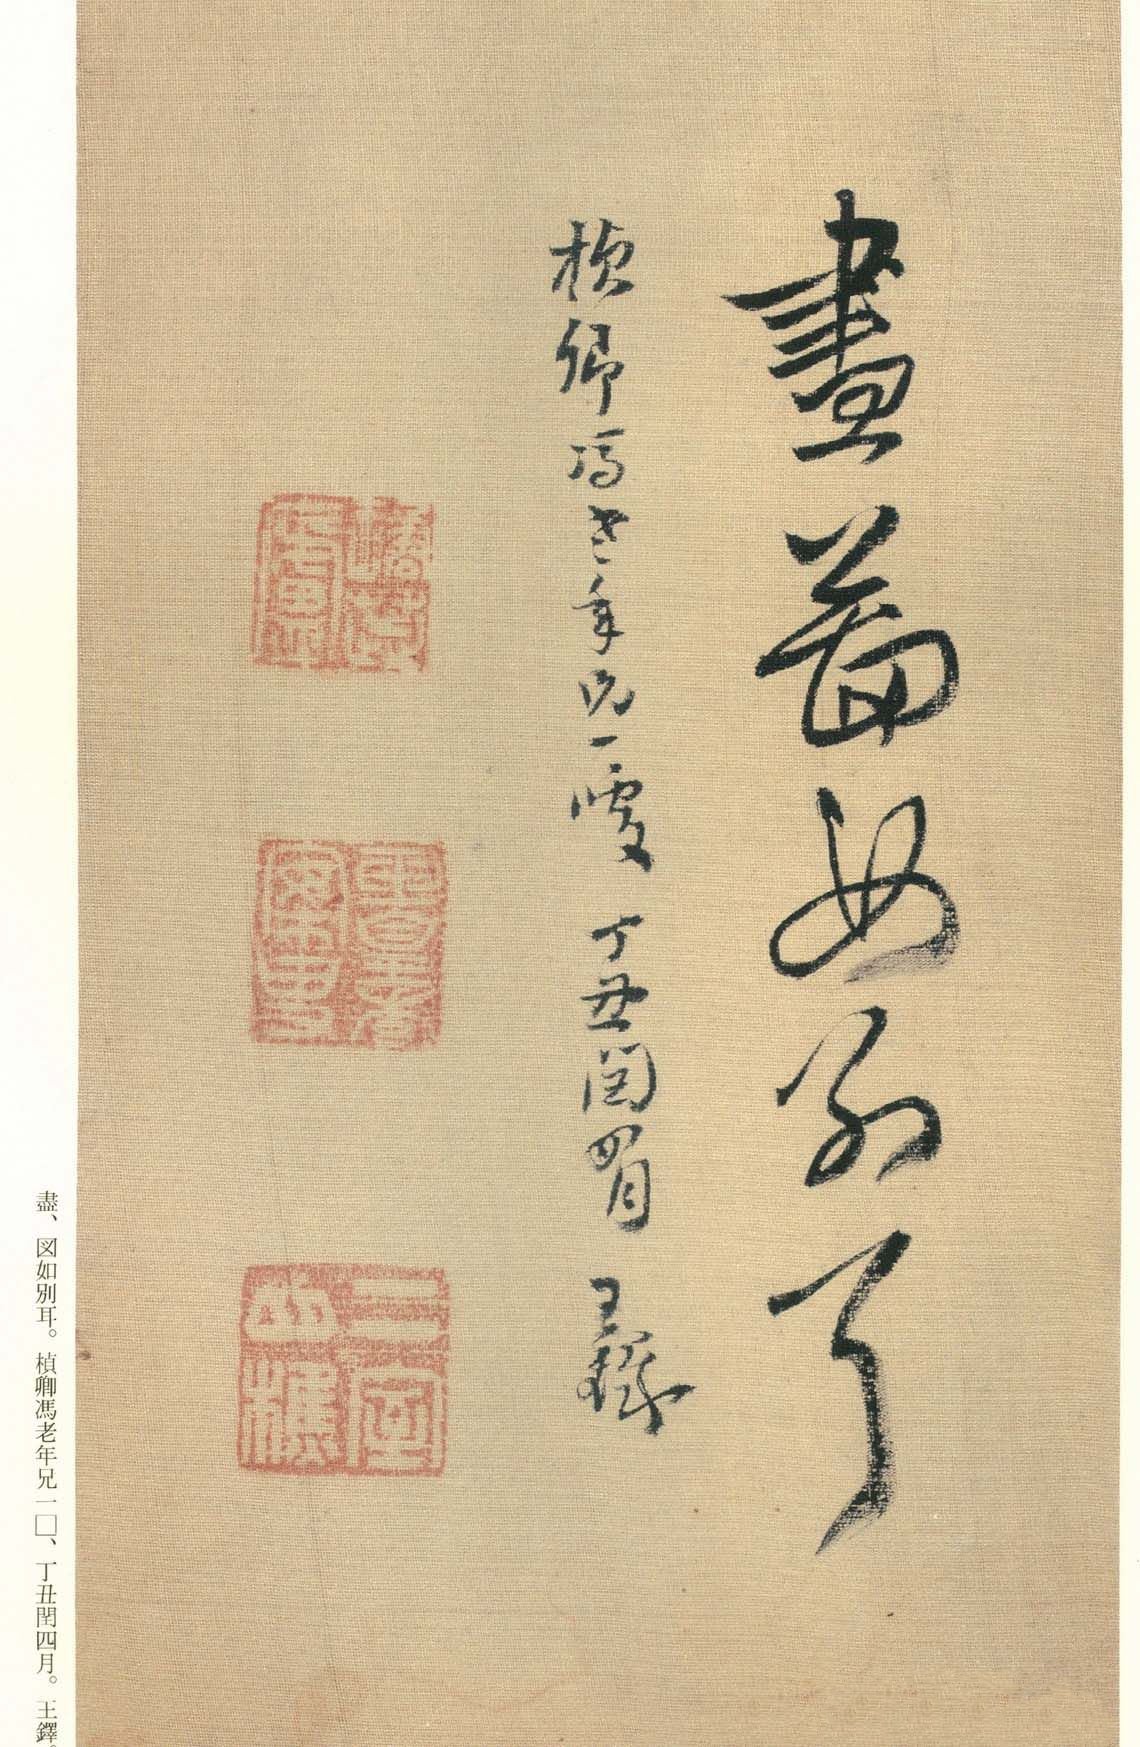 盡圖如別耳
楨卿馮老年兄一 丁丑閏四月 王鐸
盡、図如別耳。楨卿馮老年兄一□、丁丑閏四月。王鐸。